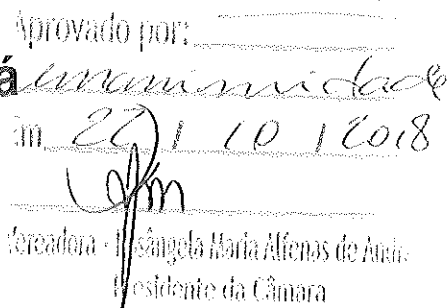 Aprovado por:
á unanimidade
Em 22 / 10 / 2018
Vereadora - Rosângela Maria Alfenas de Andr
Presidente da Câmara